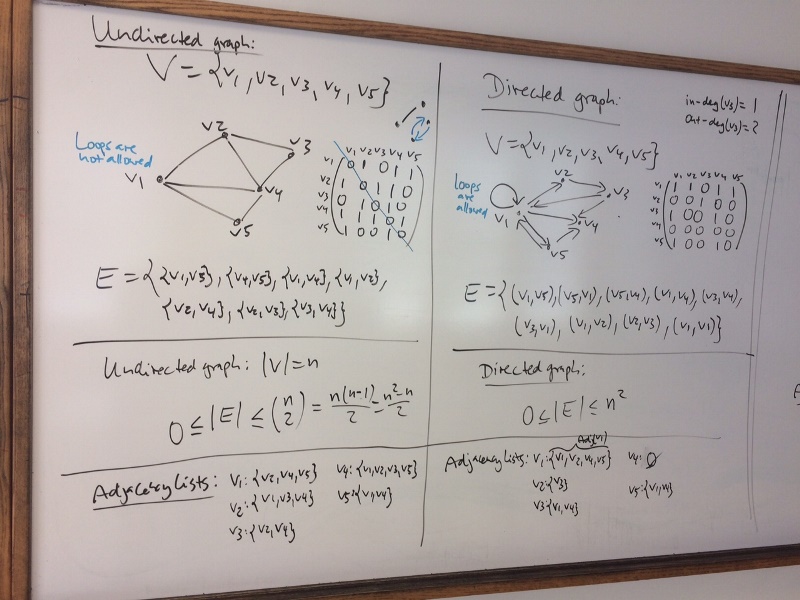 Undirected graph:
V = {v1, v2, v3, v4, v5}
Loops are
not allowed
v2
v3
v1
v4
v5
v1 v2 v3 v4 v5
v1 0 1 0 1 1
v2 1 0 1 1 0
v3 0 1 0 1 0
v4 1 1 1 0 1
v5 1 0 0 1 0
{v4,v5}, {v1,v4}, {v1,v2},
{v2,v4}, {v2,v3}, {v3,v4}}
Undirected graph: |V| = n
0 ≤ |E| ≤ (n 2) = n(n-1)/2 = n²-n/2
Adjacency Lists: v1: {v2,v4,v5} v4: {v1,v2,v3,v5}
v2: {v1,v3,v4} v5: {v1,v4}
v3: {v2,v4}
Directed graph:
in-deg(v3) = 1
out-deg(v3) = 2
V = {v1, v2, v3, v4, v5}
Loops
are
allowed
v2
v3
v1
v4
v5
v1 v2 v3 v4 v5
v1 1 1 0 1 1
v2 0 0 1 0 0
v3 1 0 0 1 0
v4 0 0 0 0 0
v5 1 0 0 1 0
E = {(v1,v5), (v5,v1), (v5,v4), (v1,v4), (v3,v4),
(v3,v1), (v1,v2), (v2,v3), (v1,v1)}
Directed graph:
0 ≤ |E| ≤ n²
Adj(v1)
Adjacency Lists: v1: {v1,v2,v4,v5} v4: ∅
v2: {v3} v5: {v1,v4}
v3: {v1,v4}